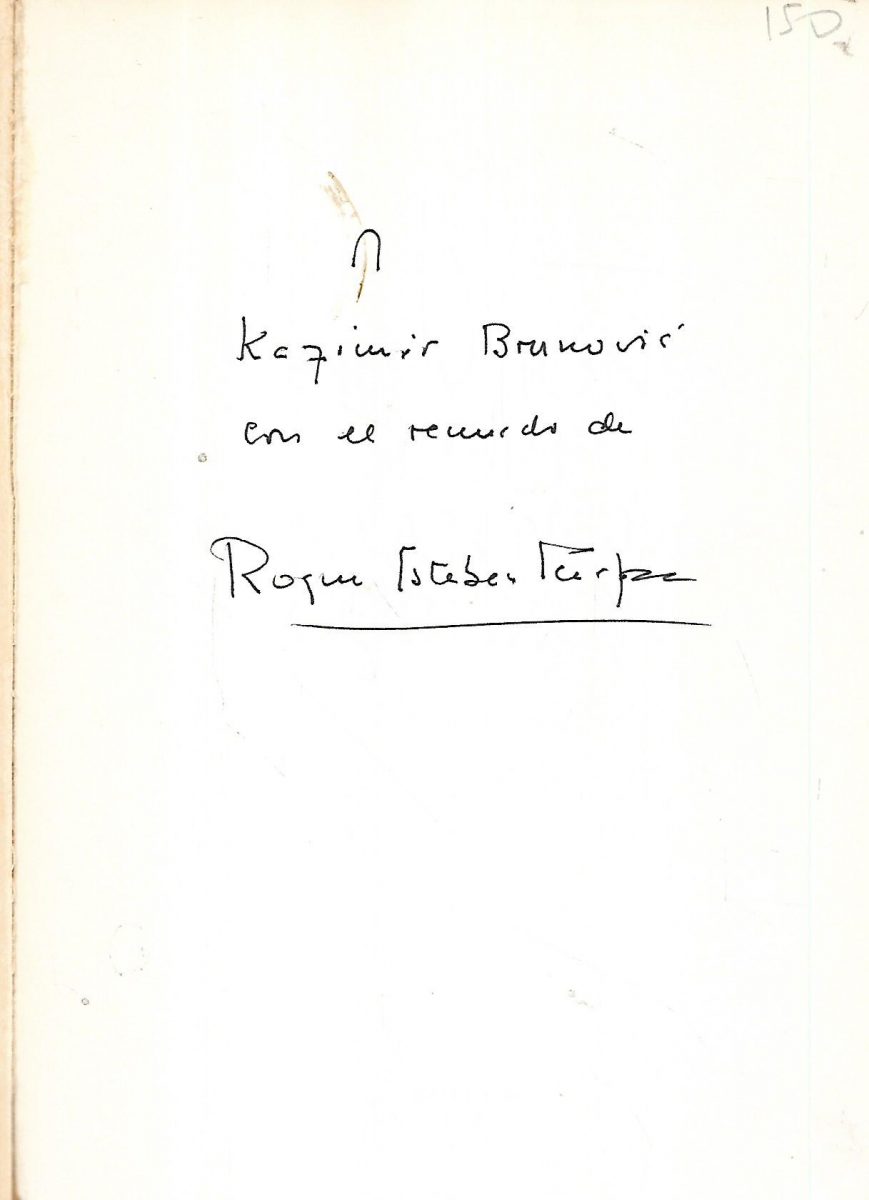 150
A
Kazimir Brunović
con el recuerdo de
Roque Esteban Scarpa